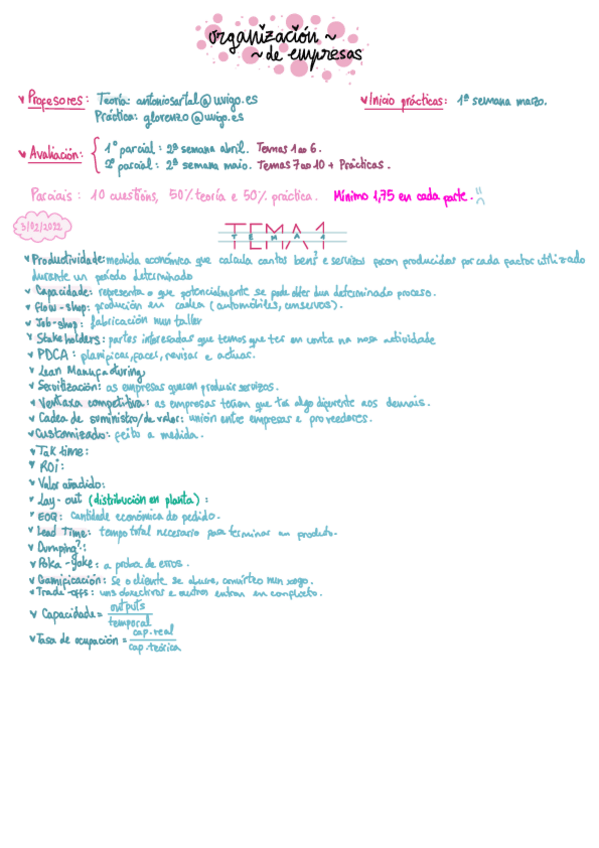 organización ~
~ de empresas
Profesores: Teoría: antoniosartal@uvigo.es
Práctica: glorenzo@uvigo.es
Inicio prácticas: 1ª semana marzo.
Avaliación: { 1º parcial: 2ª semana abril. Temas 1 ao 6.
2º parcial: 2ª semana maio. Temas 7 ao 10 + Prácticas.
Parciais: 10 cuestións, 50% teoría e 50% práctica. Mínimo 1,75 en cada parte.
3/02/2022
TEMA 1
TEMA 1
Productividade: medida económica que calcula cantos bens e servizos foron producidos por cada factor utilizado
durante un período determinado
Capacidade: representa o que potencialmente se pode obter dun determinado proceso.
Flow-shop: produción en cadea (automóbiles, conservas).
Job-shop: fabricación nun taller
Stakeholders: partes interesadas que temos que ter en conta na nosa actividade
PDCA: planificar, facer, revisar e actuar.
Lean Manufacturing
Servitización: as empresas queren producir servizos.
Ventaxa competitiva: as empresas teñen que ter algo diferente aos demais.
Cadea de suministro/de valor: unión entre empresas e proveedores.
Customizado: feito a medida.
Tak time:
ROI:
Valor añadido:
Lay-out (distribución en planta):
EOQ: Cantidade económica do pedido.
Lead Time: tempo total necesario para terminar un produto.
Dumping?:
Poka-Yoke: a proba de erros.
Gamificación: Se o cliente se aburre, convírteo nun xogo.
Trade-offs: uns obxectivos e outros entran en conflicto.
Capacidade = outputs / temporal
Tasa de ocupación = cap.real / cap.teórica